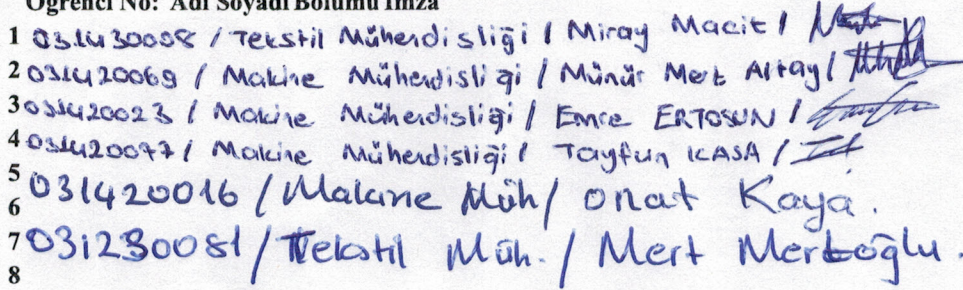 Öğrenci No: Adı Soyadı Bölümü İmza
1 031430008 / Tekstil Mühendisliği / Miray Macit /
2 031420069 / Makine Mühendisliği / Münür Mert Altay /
3 031420023 / Makine Mühendisliği / Emre ERTOSUN /
4 031420077 / Makine Mühendisliği / Tayfun KASA /
5
6 031420016 / Makine Müh / Onat Kaya.
7 031230081 / Tekstil Müh. / Mert Mertoğlu.
8